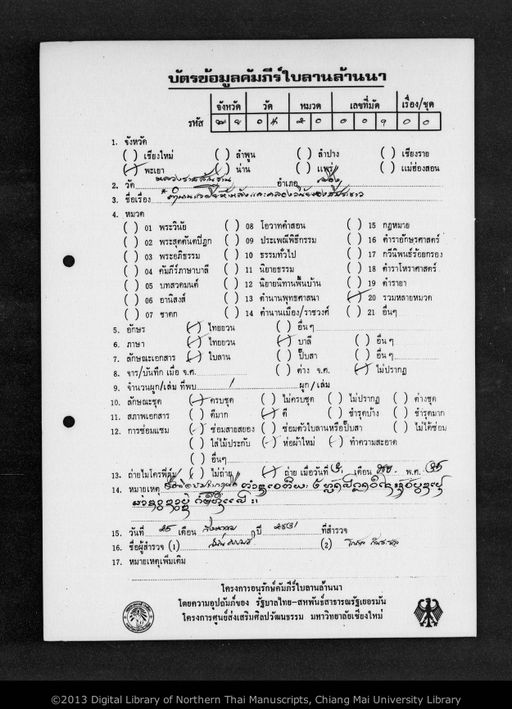 บัตรข้อมูลคัมภีร์ใบลานล้านนา
จังหวัด วัด หมวด เลขที่มัด เรื่อง/ชุด
รหัส
1. จังหวัด
( ) เชียงใหม่ ( ) ลำพูน ( ) ลำปาง ( ) เชียงราย
( ) พะเยา ( ) น่าน ( ) แพร่ ( ) แม่ฮ่องสอน
2. วัด อำเภอ
3. ชื่อเรื่อง
4. หมวด
( ) 01 พระวินัย ( ) 08 โอวาทคำสอน ( ) 15 กฎหมาย
( ) 02 พระสุตตันตปิฎก ( ) 09 ประเพณีพิธีกรรม ( ) 16 ตำราอักษรศาสตร์
( ) 03 พระอภิธรรม ( ) 10 ธรรมทั่วไป ( ) 17 กวีนิพนธ์ร้อยกรอง
( ) 04 คัมภีร์ภาษาบาลี ( ) 11 นิยายธรรม ( ) 18 ตำราโหราศาสตร์
( ) 05 บทสวดมนต์ ( ) 12 นิยายนิทานพื้นบ้าน ( ) 19 ตำรายา
( ) 06 อานิสงส์ ( ) 13 ตำนานพุทธศาสนา ( ) 20 รวมหลายหมวด
( ) 07 ชาดก ( ) 14 ตำนานเมือง/ราชวงศ์ ( ) 21 อื่นๆ
5. อักษร ( ) ไทยยวน ( ) อื่นๆ
6. ภาษา ( ) ไทยยวน ( ) บาลี ( ) อื่น ๆ
7. ลักษณะเอกสาร ( ) ใบลาน ( ) ปั๊บสา ( ) อื่น ๆ
8. จาร/บันทึก เมื่อ จ.ศ. ( ) ค่าง จ.ศ. ( ) ไม่ปรากฏ
9. จำนวนผูก/เล่ม ที่พบ 1 ผูก/เล่ม
10. ลักษณะชุด ( ) ครบชุด ( ) ไม่ครบชุด ( ) ไม่ปรากฏ ( ) ต่างชุด
11. สภาพเอกสาร ( ) ดีมาก ( ) ดี ( ) ชำรุดบ้าง ( ) ชำรุดมาก
12. การซ่อมแซม ( ) ซ่อมสายสยอง ( ) ซ่อมตัวใบลานหรือปั๊บสา ( ) ไม่ได้ซ่อม
( ) ใส่ไม้ประกับ ( ) ห่อผ้าใหม่ ( ) ทำความสะอาด
( ) อื่นๆ
13. ถ่ายไมโครฟิล์ม ( ) ไม่ถ่าย ( ) ถ่าย เมื่อวันที่ เดือน พ.ศ.
14. หมายเหตุ
15. วันที่ 25 เดือน ปี 2531 ที่สำรวจ
16. ชื่อผู้สำรวจ (1) (2)
17. หมายเหตุเพิ่มเติม
โครงการอนุรักษ์คัมภีร์ใบลานล้านนา
โดยความอุปถัมภ์ของ รัฐบาลไทย-สหพันธ์สาธารณรัฐเยอรมัน
โครงการศูนย์ส่งเสริมศิลปวัฒนธรรม มหาวิทยาลัยเชียงใหม่
©2013 Digital Library of Northern Thai Manuscripts, Chiang Mai University Library